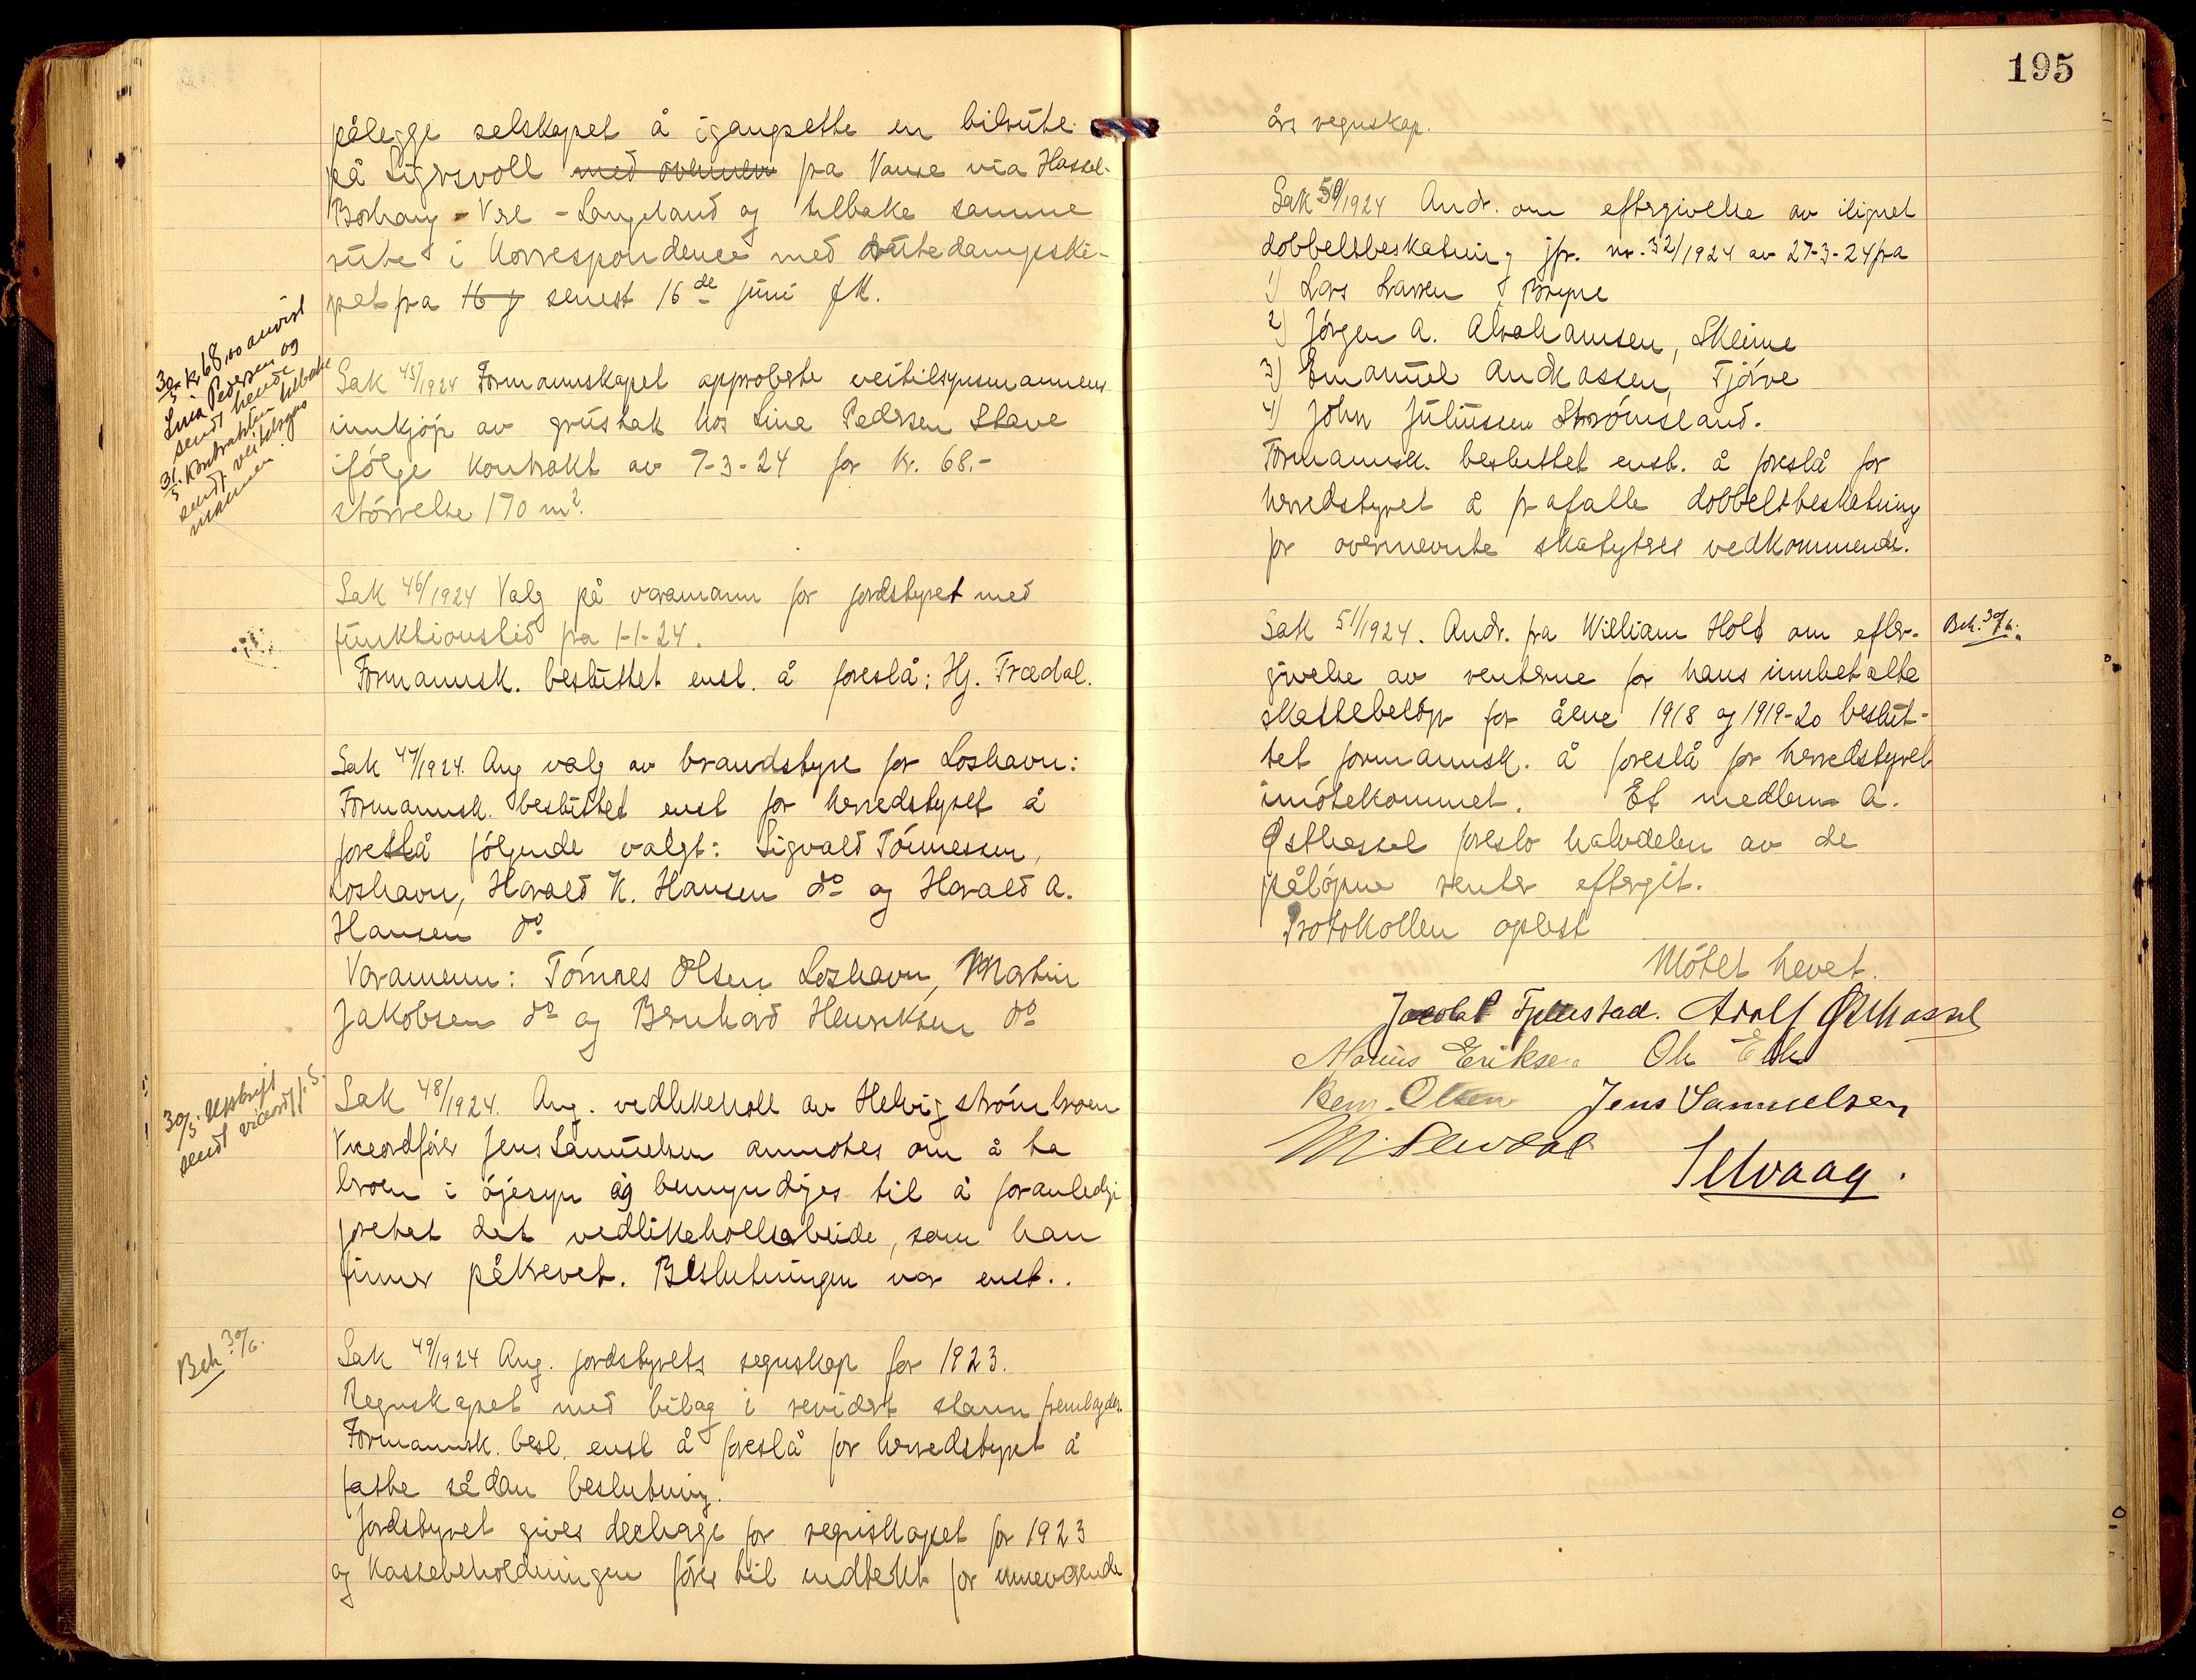 pålegge selskapet å igangsette en bilrute
på Sigersvoll med ovennevn fra Vanse via Hassel-
Borhaug - Vere - Langeland og tilbake samme
rute i korrespondence med rutedampski-
pet fra 16 j senest 16de juni f.k.
30/5 kr 68,00 anvist
Lina Pedersen og
sendt hende
31/5. Kontrakten tilbake
sendt veitilsyns
mannen.
Sak 45/1924 Formannskapet approberte veitilsynsmannens
innkjöp av grustak hos Line Pedersen Stave
ifölge kontrakt av 7-3-24 for kr. 68.-
störrelse 170 m².
Sak 46/1924 Valg på varamann for jordstyret med
funktionstid fra 1-1-24.
Formannsk. besluttet enst. å foreslå: Hj. Trædal.
Sak 47/1924. Ang valg av brandstyre for Loshavn:
Formannsk. besluttet enst for herredstyret å
foreslå fölgende valgt: Sigvald Tönnessen,
Loshavn, Harald K. Hansen do og Harald A.
Hansen do
Varamenn: Tönnes Olsen Loshavn, Martin
Jakobsen do og Bernhard Henriksen do
30/5. Utskrift
sendt viceordf. J. S.
Sak 48/1924. Ang. vedlikeholl av Helvigströmbroen
Viceordförer Jens Samuelsen anmodes om å ta
broen i öjesyn og bemyndiges til å foranledige
foretat det vedlikehollsarbeide, som han
finner påkrevet. Beslutningen var enst..
Beh 30/6.
Sak 49/1924 Ang. jordstyrets regnskap for 1923.
Regnskapet med bilag i revidert stann fremlagdes.
Formannsk. besl. enst å foreslå for herredstyret å
fatte sådan beslutning.
Jordstyret gives decharge for regnskapet for 1923
og kassebeholdningen föres til indtekt for inneværende
195
års regnskap.
Sak 50/1924 Andr. om eftergivelse av ilignet
dobbeltbeskatning jfr. nr. 32/1924 av 27-3-24 fra
1) Lars Larsen, Bryne
2) Jörgen A. Abrahamsen, Skeime
3) Emanuel Andreassen, Tjörve
4) John Juliussen Strömsland.
Formannsk. besluttet enst. å foreslå for
herredstyret å frafalle dobbeltbeskatning
for ovennevnte skatyteres vedkommende.
Sak 51/1924. Andr. fra William Holt om efter-
givelse av renterne for hans innbetalte
skattebelöp for årene 1918 og 1919-20 beslut-
tet formannsk. å foreslå for herredstyret
imötekommet. Et medlem A.
Østhassel foreslo halvdelen av de
pålöpne renter eftergit.
Beh. 30/6.
Protokollen oplest
Mötet hevet.
Jacob Fjellestad. Adolf Østhassel
Marius Eriksen Ole
Bern. Olsen Jens Samuelsen
Selvaag.